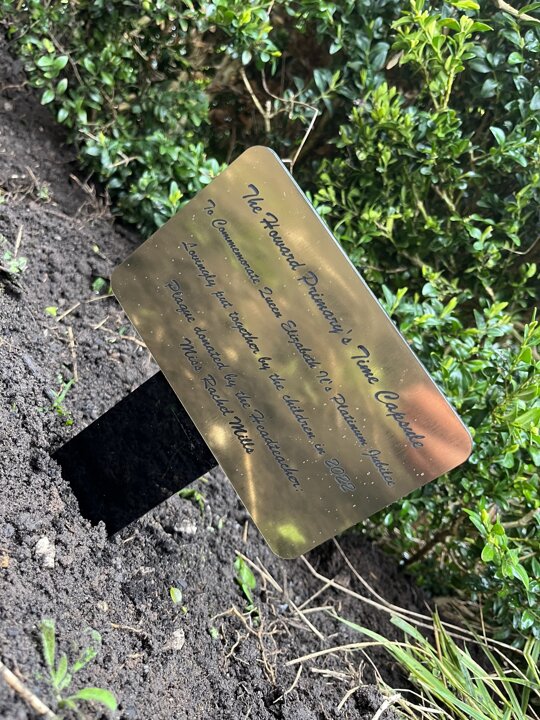 The Howard Primary's Time Capsule
To Commemorate Queen Elizabeth II's Platinum Jubilee
Lovingly put together by the children in 2022
Plaque donated by the Headteacher:
Miss Rachel Mills